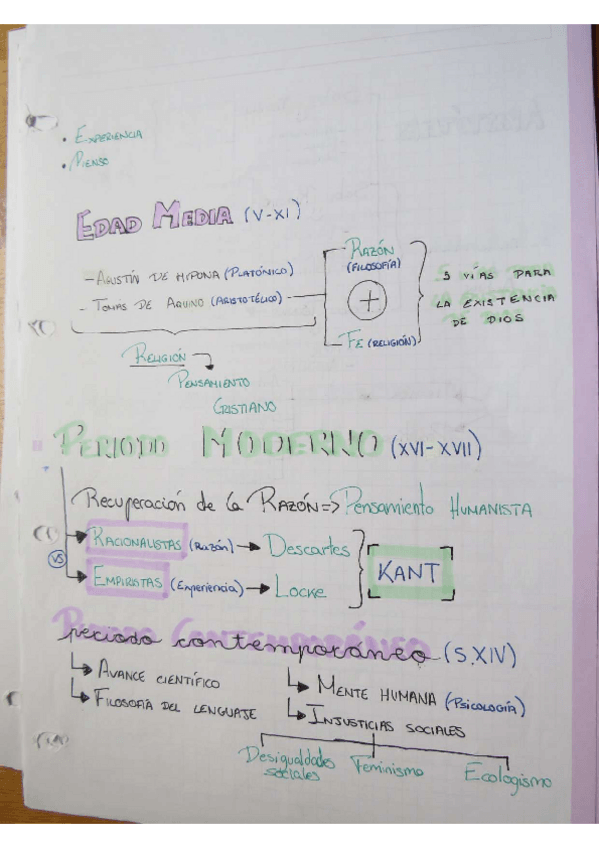 • EXPERIENCIA
• PIENSO
EDAD MEDIA (V-XI)
- AGUSTÍN DE HIPONA (PLATÓNICO)
- TOMÁS DE AQUINO (ARISTOTÉLICO)
RAZÓN
(FILOSOFÍA)
+
FE (RELIGIÓN)
5 VÍAS PARA
LA EXISTENCIA
DE DIOS
RELIGIÓN
PENSAMIENTO
CRISTIANO
PERIODO MODERNO (XVI-XVII)
Recuperación de la RAZÓN => Pensamiento HUMANISTA
VS
RACIONALISTAS (Razón) → Descartes
EMPIRISTAS (Experiencia) → Locke
KANT
periodo contemporáneo (S.XIV)
AVANCE CIENTÍFICO
FILOSOFÍA DEL LENGUAJE
MENTE HUMANA (Psicología)
INJUSTICIAS SOCIALES
Desigualdades sociales
Feminismo
Ecologismo